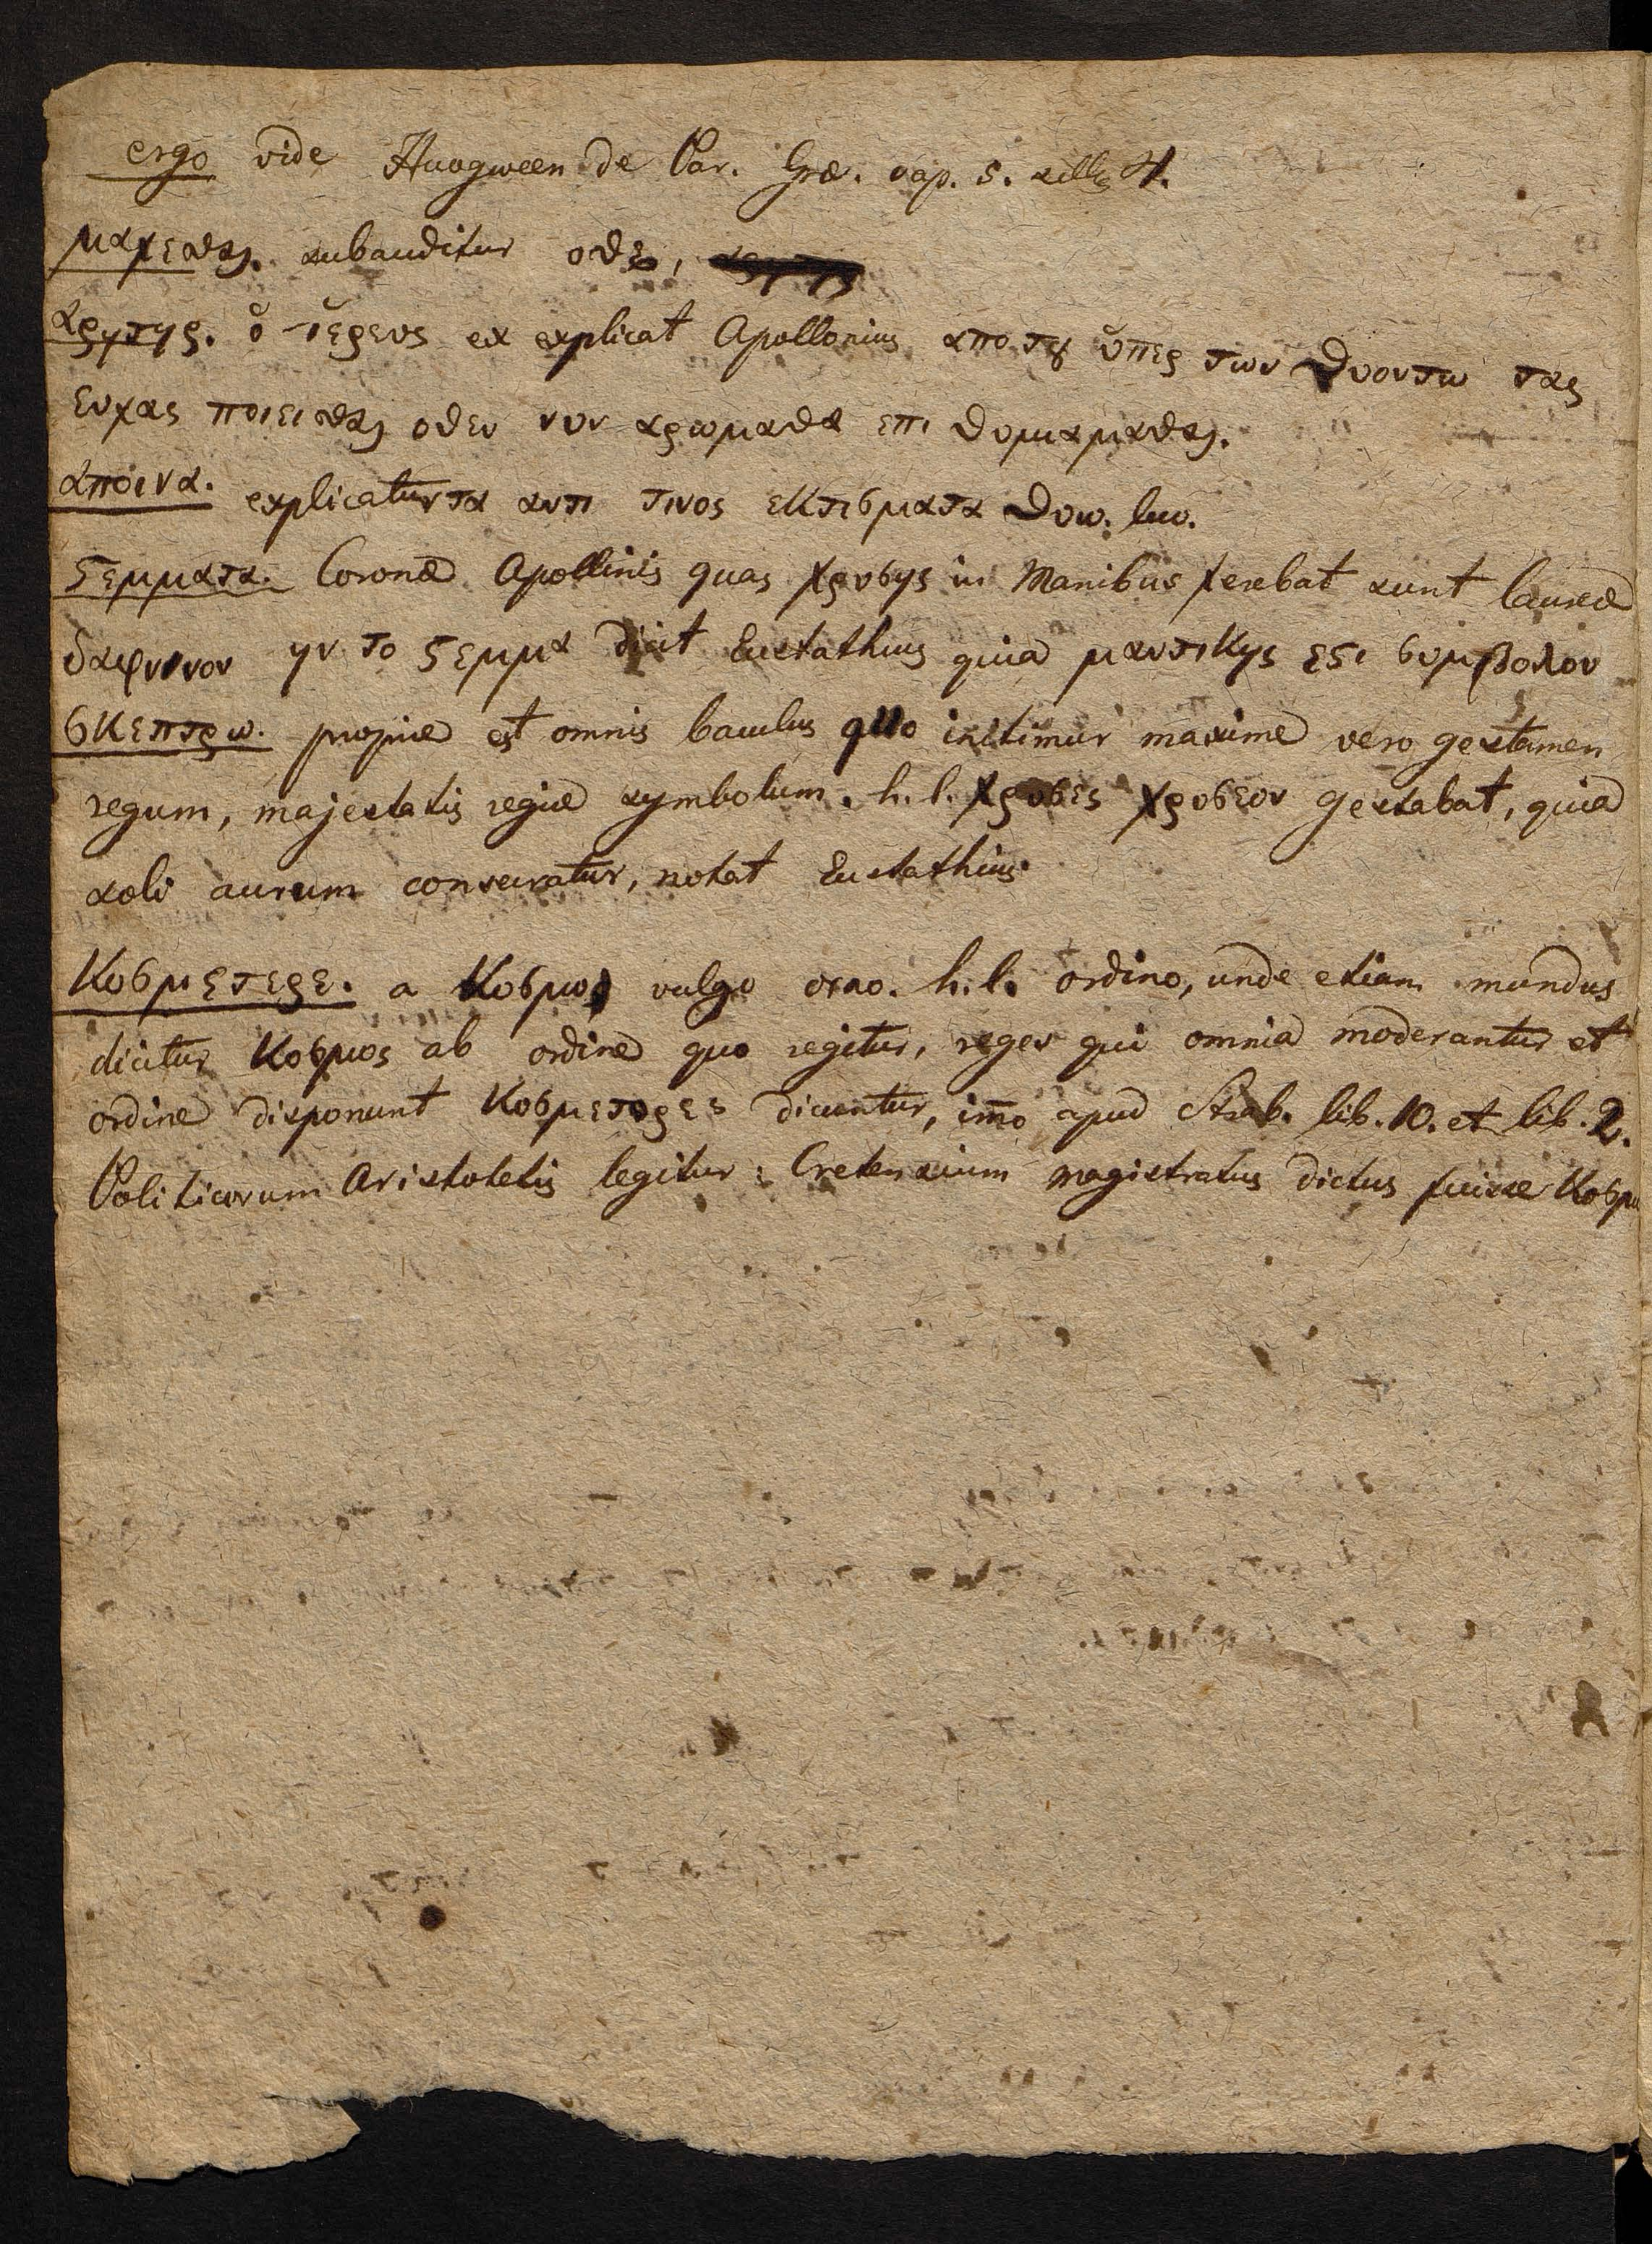 ergo vide Huogween de Par. Græ. cap. 5. 
μαχεσθαι. subauditur οδε,
αρητηρ. ὁ ἱερευς ex explicat Apollonius απο του ὑπερ των θυοντω τας
ευχας ποιεισθαι οθεν νυν αρωμαθα επι θυμιαμαθαι.
αποινα. explicatur τα αντι τινος εκτισματα θυω. luo.
ϛεμματα. Coronæ Apollinis quas χρυσης in Manibus ferebat sunt laureæ
δαφνινον ην το ϛεμμα dicit Eustathius quia μαντικης εϛι συμβολον
σκεπτρω. proprie est omnis baculus quo initimur maxime vero gestamen
regum, majestatis regiæ symbolum. h. l. χρυσες χρυσεον gestabat, quia
soli aurum consecratur, notat Eustathius.
Κοσμετερε. a Κοσμω vulgo orno. h. l. ordino, unde etiam mundus
dicitur Κοσμος ab ordine quo regitur, reges qui omnia moderantur et
ordine disponunt Κοσμετορες dicuntur, im̅o apud Strab. lib. 10. et lib. 2.
Politicorum Aristotelis legitur: Cretensium magistratus dictus fuisse Κοσμ